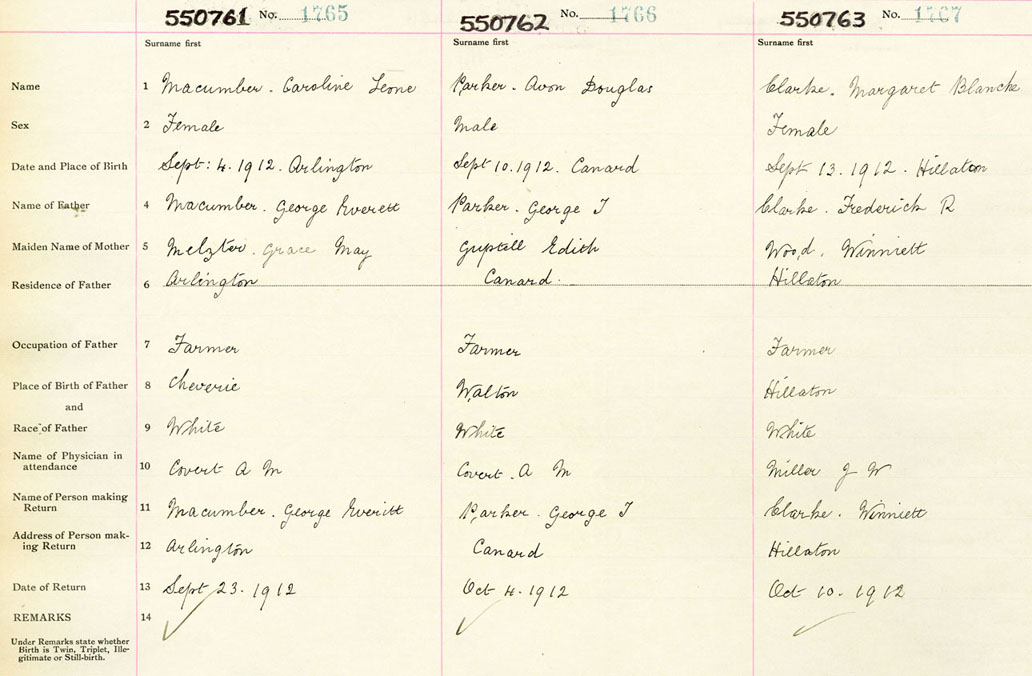 550761 No. 1765 550762 No. 1766 550763 No. 1767
Surname first Surname first Surname first
Name 1 Macumber. Caroline Leone Parker. Avon Douglas Clarke. Margaret Blanche
Sex 2 Female Male Female
Date and Place of Birth 3 Sept: 4. 1912. Arlington Sept 10. 1912. Canard Sept 13. 1912. Hillaton
Name of Father 4 Macumber. George Everett Parker. George T Clarke. Frederick R
Maiden Name of Mother 5 Melzter. Grace May Guptill Edith Wood. Winniett
Residence of Father 6 Arlington Canard. Hillaton
Occupation of Father 7 Farmer Farmer Farmer
Place of Birth of Father 8 Cheverie Walton Hillaton
and
Race of Father 9 White White White
Name of Physician in
attendance 10 Covert A M Covert. A M Miller J W
Name of Person making
Return 11 Macumber. George Everitt Parker. George T Clarke. Winniett
Address of Person mak-
ing Return 12 Arlington Canard Hillaton
Date of Return 13 Sept 23. 1912 Oct 4. 1912 Oct 10. 1912
REMARKS 14
Under Remarks state whether
Birth is Twin, Triplet, Ille-
gitimate or Still-birth.